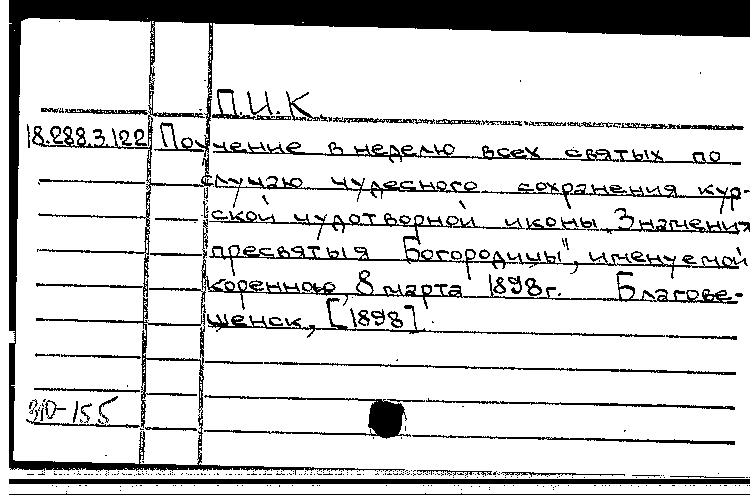 П.И.К.
18.288.3.122 Поучение в неделю всех святых по
случаю чудесного сохранения кур-
ской чудотворной иконы „Знамения
пресвятыя Богородицы", именуемой
коренною, 8 марта 1898г. Благове-
щенск, [1898].
310-155